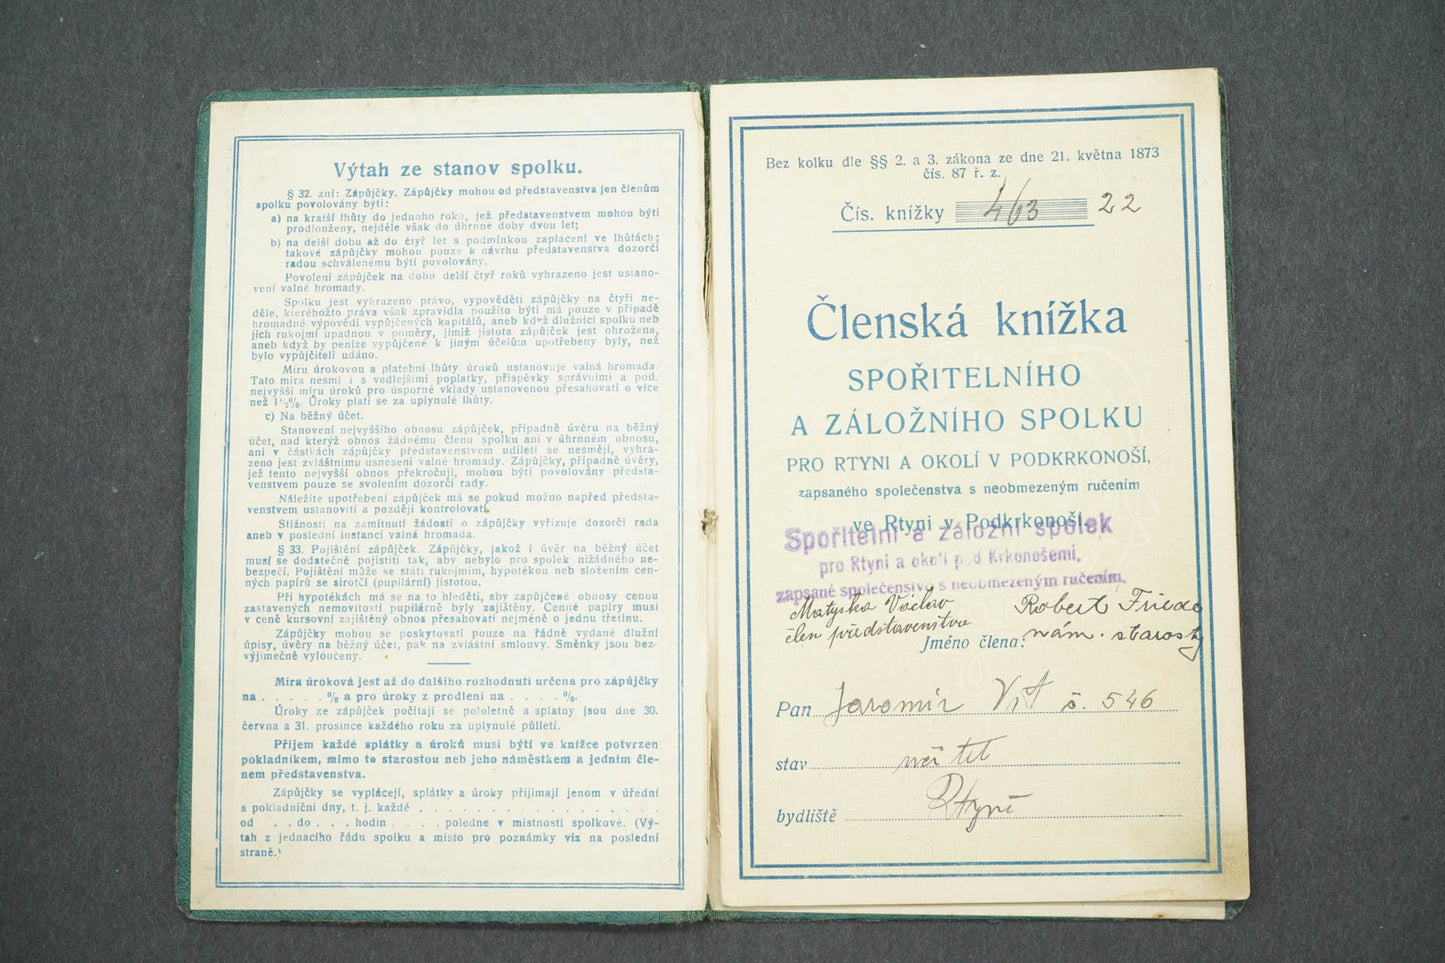 Výtah ze stanov spolku.
§ 32. zní: Zápůjčky. Zápůjčky mohou od představenstva jen členům
spolku povolovány býti:
a) na kratší lhůty do jednoho roku, jež představenstvem mohou býti
prodlouženy, nejdéle však do úhrnné doby dvou let;
b) na delší dobu až do čtyř let s podmínkou zaplacení ve lhůtách;
takové zápůjčky mohou pouze k návrhu představenstva dozorčí
radou schváleněmu býti povolovány.
Povolení zápůjček na dobu delší čtyř roků vyhrazeno jest ustano-
vení valné hromady.
Spolku jest vyhrazeno právo, vypověděti zápůjčky na čtyři ne-
děle, kteréhožto práva však zpravidla použito býti má pouze v případě
hromadné výpovědi vypůjčených kapitálů, aneb když dlužníci spolku neb
jich rukojmí upadnou v poměry, jimiž jistota zápůjček jest ohrožena,
aneb když by peníze vypůjčené k jiným účelům upotřebeny byly, než
bylo vypůjčiteli udáno.
Míru úrokovou a platební lhůty úroků ustanovuje valná hromada.
Tato míra nesmí i s vedlejšími poplatky, příspěvky správními a pod.
nejvyšší míru úroků pro úsporné vklady ustanovenou přesahovati o více
než 1½%. Úroky platí se za uplynulé lhůty.
c) Na běžný účet.
Stanovení nejvyššího obnosu zápůjček, případně úvěru na běžný
účet, nad kterýž obnos žádnému členu spolku ani v úhrnném obnosu,
ani v částkách zápůjčky představenstvem uděleti se nesmějí, vyhra-
zeno jest zvláštnímu usnesení valné hromady. Zápůjčky, případně úvěry,
jež tento nejvyšší obnos překročují, mohou býti povolovány předsta-
venstvem pouze se svolením dozorčí rady.
Náležité upotřebení zápůjček má se pokud možno napřed předsta-
venstvem ustanoviti a později kontrolovati.
Stížnosti na zamítnutí žádosti o zápůjčky vyřizuje dozorčí rada
aneb v poslední instanci valná hromada.
§ 33. Pojištění zápůjček. Zápůjčky, jakož i úvěr na běžný účet
musí se dodatečně pojistiti tak, aby nebylo pro spolek nižádného ne-
bezpečí. Pojištění může se státi rukojmím, hypotékou neb složením cen-
ných papírů se sirotčí (pupilární) jistotou.
Při hypotékách má se na to hleděti, aby zapůjčené obnosy cenou
zastavených nemovitostí pupilárně byly zajištěny. Cenné papíry musí
v ceně kursovní zajištěný obnos přesahovati nejméně o jednu třetinu.
Zápůjčky mohou se poskytovati pouze na řádně vydané dlužní
úpisy, úvěry na běžný účet, pak na zvláštní smlouvy. Směnky jsou bez-
výjimečně vyloučeny.
Míra úroková jest až do dalšího rozhodnutí určena pro zápůjčky
na . . . . . % a pro úroky z prodlení na . . . . %.
Úroky ze zápůjček počítají se pololetně a splatny jsou dne 30.
června a 31. prosince každého roku za uplynulé půlletí.
Příjem každé splátky a úroků musí býti ve knížce potvrzen
pokladníkem, mimo to starostou neb jeho náměstkem a jedním čle-
nem představenstva.
Zápůjčky se vyplácejí, splátky a úroky přijímají jenom v úřední
a pokladniční dny, t. j. každé . . . . . . . . . . . . . . . . . . .
od . . do . . . hodin . . . . poledne v místnosti spolkové. (Vý-
tah z jednacího řádu spolku a místo pro poznámky viz na poslední
straně.)
Bez kolku dle §§ 2. a 3. zákona ze dne 21. května 1873
čís. 87 ř. z.
Čís. knížky 463 22
Členská knížka
SPOŘITELNÍHO
A ZÁLOŽNÍHO SPOLKU
PRO RTYNI A OKOLÍ V PODKRKONOŠÍ,
zapsaného společenstva s neobmezeným ručením
ve Rtyni v Podkrkonoší.
Spořitelní a záložní spolek
pro Rtyni a okolí pod Krkonošemi,
zapsané společenstvo s neobmezeným ručením.
Matyska Václav Robert Friede
člen představenstva nám. starosty
Jméno člena:
Pan Jaromír Vít č. 546
stav učitel
bydliště Rtyně